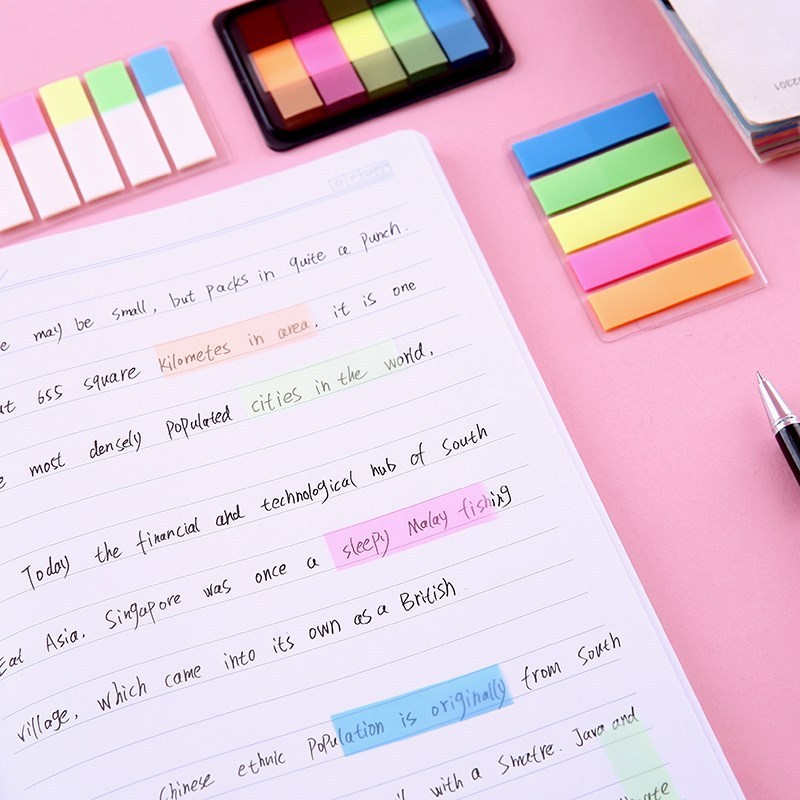 may be small, but packs in quite a punch.
655 square kilometes in area. it is one
most densely populated cities in the world.
Today the financial and technological hub of South
Eat Asia. Singapore was once a sleepy Malay fishing
village, which came into its own as a British
Chinese ethnic population is originally from South
with a Smatre. Java and